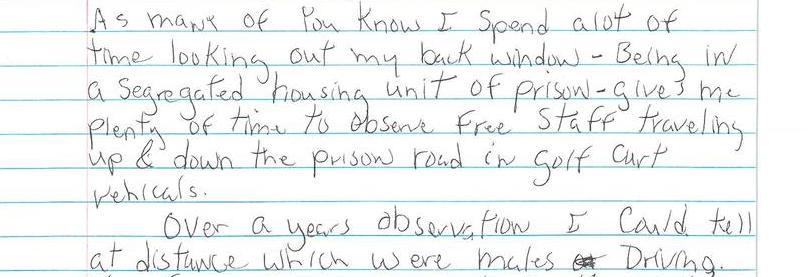 As many of You Know I Spend alot of
time looking out my back window - Being in
a Segregated housing unit of prison - gives me
Plenty of time to observe Free Staff traveling
up & down the prison road in golf Curt
vehicals.
Over a years observation I Could tell
at distance which were males Driving.